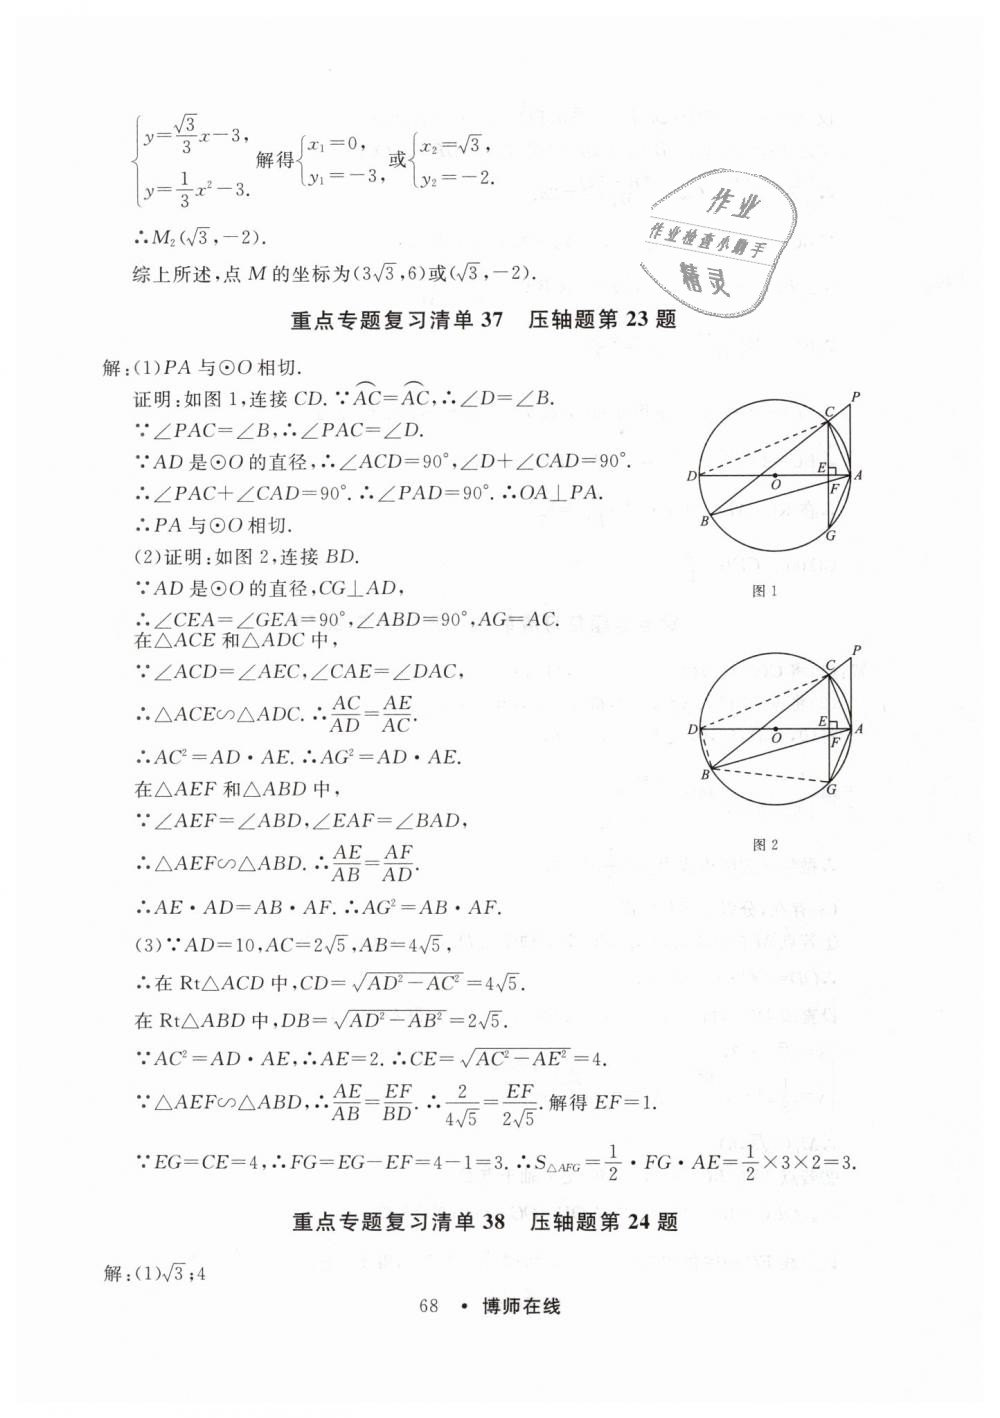 {y=√3/3 x-3, y=1/3 x²-3. 解得{x₁=0, y₁=-3, 或{x₂=√3, y₂=-2.
∴M₂(√3,-2).
综上所述,点 M 的坐标为(3√3,6)或(√3,-2).
作业
作业检查小助手
精灵
重点专题复习清单 37 压轴题第 23 题
解:(1)PA 与⊙O 相切.
证明:如图 1,连接 CD. ∵A͡C=A͡C,∴∠D=∠B.
∵∠PAC=∠B,∴∠PAC=∠D.
∵AD 是⊙O 的直径,∴∠ACD=90°,∠D+∠CAD=90°.
∴∠PAC+∠CAD=90°. ∴∠PAD=90°. ∴OA⊥PA.
∴PA 与⊙O 相切.
P
C
D
O
E
F
A
B
G
图 1
(2)证明:如图 2,连接 BD.
∵AD 是⊙O 的直径,CG⊥AD,
∴∠CEA=∠GEA=90°,∠ABD=90°,AG=AC.
在△ACE 和△ADC 中,
∵∠ACD=∠AEC,∠CAE=∠DAC,
∴△ACE∽△ADC. ∴AC/AD=AE/AC.
∴AC²=AD·AE. ∴AG²=AD·AE.
在△AEF 和△ABD 中,
∵∠AEF=∠ABD,∠EAF=∠BAD,
∴△AEF∽△ABD. ∴AE/AB=AF/AD.
∴AE·AD=AB·AF. ∴AG²=AB·AF.
P
C
D
O
E
F
A
B
G
图 2
(3)∵AD=10,AC=2√5,AB=4√5,
∴在 Rt△ACD 中,CD=√(AD²-AC²)=4√5.
在 Rt△ABD 中,DB=√(AD²-AB²)=2√5.
∵AC²=AD·AE,∴AE=2. ∴CE=√(AC²-AE²)=4.
∵△AEF∽△ABD,∴AE/AB=EF/BD. ∴2/4√5=EF/2√5. 解得 EF=1.
∵EG=CE=4,∴FG=EG-EF=4-1=3. ∴S△AFG=1/2·FG·AE=1/2×3×2=3.
重点专题复习清单 38 压轴题第 24 题
解:(1)√3;4
68 · 博师在线